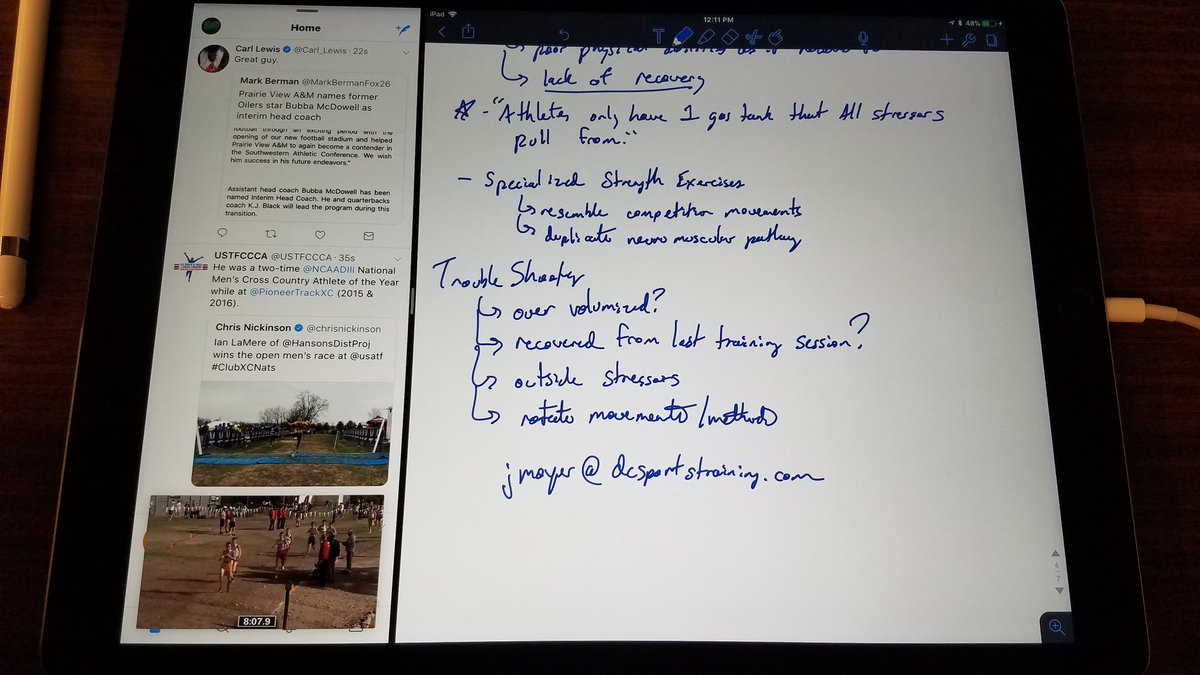 iPad
12:11 PM
48%
Home
Carl Lewis @Carl_Lewis · 22s
Great guy.
Mark Berman @MarkBermanFox26
Prairie View A&M names former
Oilers star Bubba McDowell as
interim head coach
football through an exciting period with the
opening of our new football stadium and helped
Prairie View A&M to again become a contender in
the Southwestern Athletic Conference. We wish
him success in his future endeavors."
Assistant head coach Bubba McDowell has been
named Interim Head Coach. He and quarterbacks
coach K.J. Black will lead the program during this
transition.
USTFCCCA @USTFCCCA · 35s
He was a two-time @NCAADIII National
Men's Cross Country Athlete of the Year
while at @PioneerTrackXC (2015 &
2016).
Chris Nickinson @chrisnickinson
Ian LaMere of @HansonsDistProj
wins the open men's race at @usatf
#ClubXCNats
8:07.9
poor physical
lack of recovery
- "Athletes only have 1 gas tank that All stressors
pull from."
- Specialized Strength Exercises
resemble competition movements
duplicate neuromuscular pathway
Trouble Shooter
over volumized?
recovered from last training session?
outside stressors
rotate movements/methods
jmoyer@dcsportstraining.com
6
7